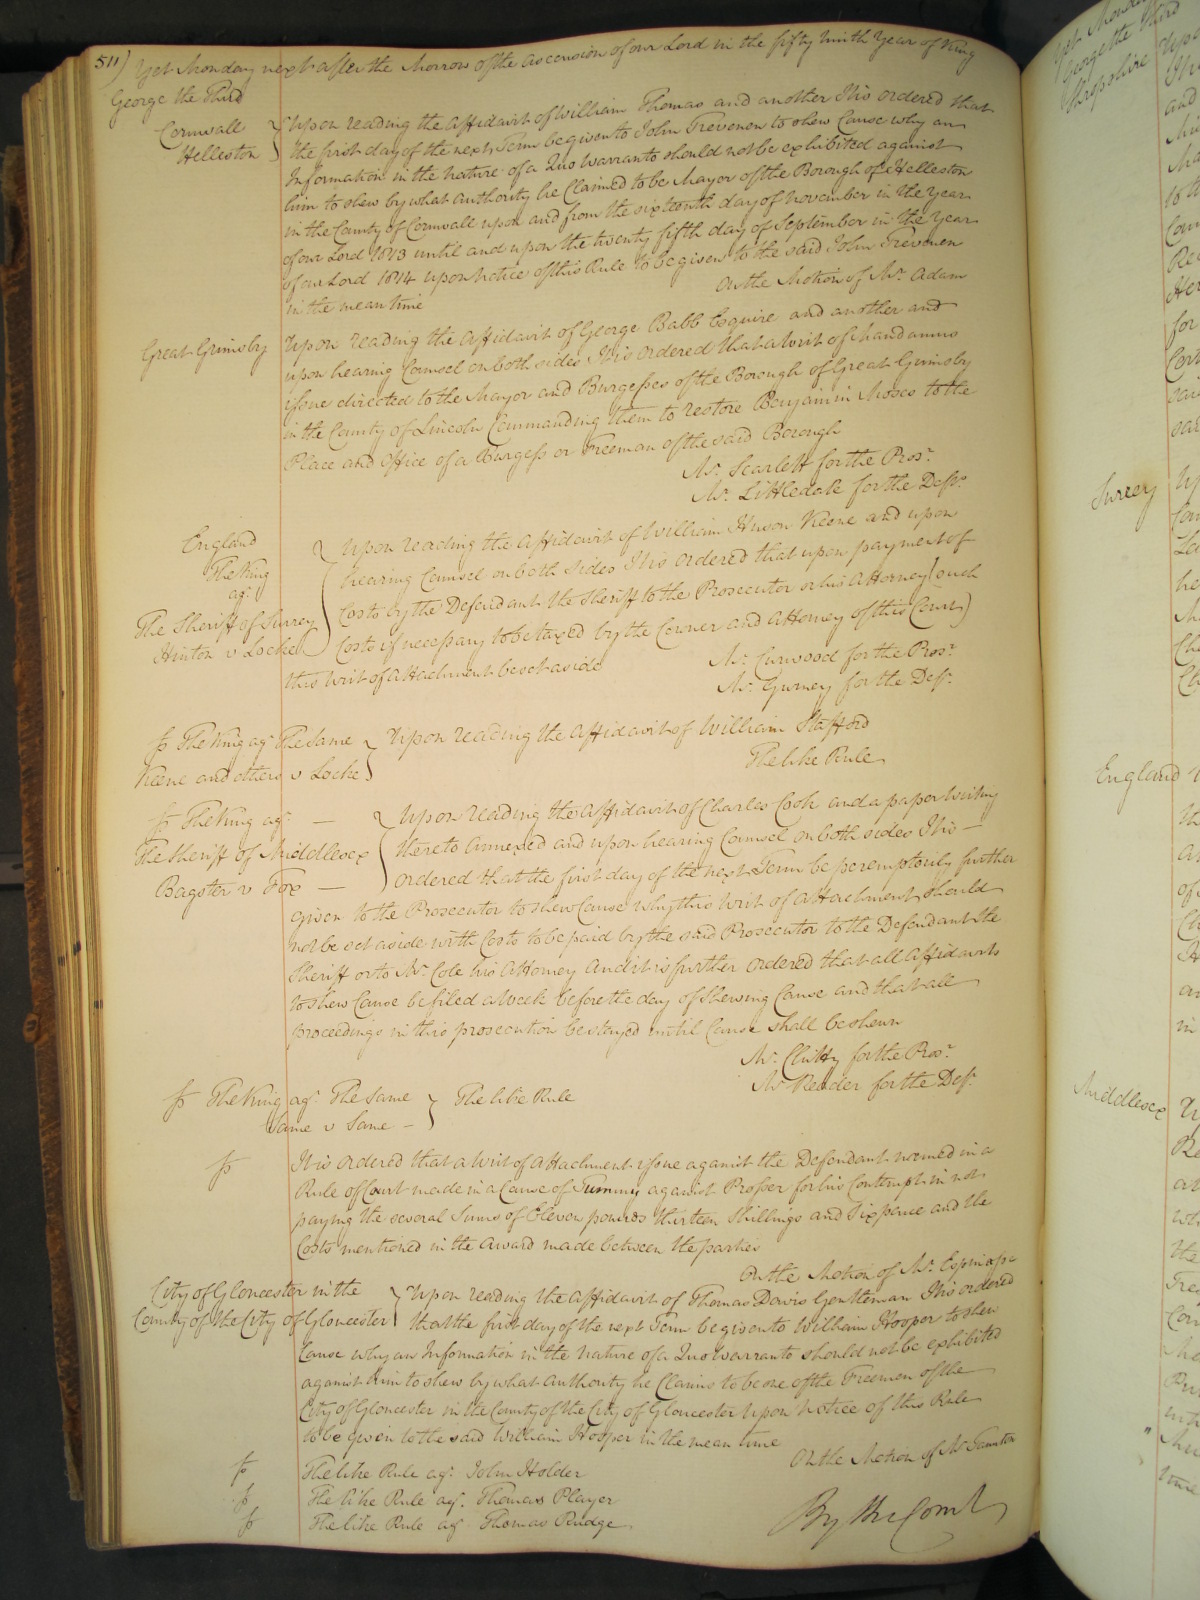 511)
Yet Monday next after the Morrow of the Ascension of our Lord in the fifty ninth Year of King
George the Third
Cornwall
Helleston
Upon reading the Affidavit of William Thomas and another It is ordered that
the first day of the next Term be given to John Trevenen to shew Cause why an
Information in the nature of a Quo Warranto should not be exhibited against
him to shew by what Authority he Claimed to be Mayor of the Borough of Helleston
in the County of Cornwall upon and from the sixteenth day of November in the Year
of our Lord 1813 until and upon the twenty fifth day of September in the Year
of our Lord 1814 upon Notice of this Rule to be given to the said John Trevenen
in the mean time
On the Motion of Mr. Adam
Great Grimsby
Upon reading the Affidavit of George Babb Esquire and another and
upon hearing Counsel on both sides It is ordered that a Writ of Mandamus
issue directed to the Mayor and Burgesses of the Borough of Great Grimsby
in the County of Lincoln Commanding them to restore Benjamin Moses to the
Place and Office of a Burgess or Freeman of the said Borough
Mr. Scarlett for the Pros.r
Mr. Littledale for the Deft.
England
The King
agt.
The Sheriff of Surrey
Hinton v Locke
Upon reading the Affidavit of William Huson Keene and upon
hearing Counsel on both sides It is ordered that upon payment of
Costs by the Defendant the Sheriff to the Prosecutor or his Attorney (such
Costs if necessary to be taxed by the Coroner and Attorney of this Court)
this Writ of Attachment be set aside
Mr. Curwood for the Pros.r
Mr. Gurney for the Deft.
The King agt The Same
Keene and others v Locke
Upon reading the Affidavit of William Stafford
The like Rule
The King agt. —
The Sheriff of Middlesex
Bagster v Fox —
Upon reading the Affidavit of Charles Cook and a paper Writing
thereto annexed and upon hearing Counsel on both sides It is —
ordered that the first day of the next Term be peremptorily further
given to the Prosecutor to shew Cause why this Writ of Attachment should
not be set aside with Costs to be paid by the said Prosecutor to the Defendant the
Sheriff or to Mr. Cole his Attorney And it is further ordered that all Affidavits
to shew Cause be filed a Week before the day of Shewing Cause and that all
proceedings in this prosecution be stayed until Cause shall be shewn
Mr. Chitty for the Pros.r
Mr Reader for the Deft.
The King agt. The Same
Same v Same —
The like Rule
It is ordered that a Writ of Attachment issue against the Defendant named in a
Rule of Court made in a Cause of against Prosser for his Contempt in not
paying the several Sums of Eleven pounds thirteen Shillings and Sixpence and the
Costs mentioned in the Award made between the parties
On the Motion of Mr. Espinasse
City of Gloucester in the
County of the City of Gloucester
Upon reading the Affidavit of Thomas Davis Gentleman It is ordered
that the first day of the next Term be given to William Hooper to shew
Cause why an Information in the nature of a Quo Warranto should not be exhibited
against him to shew by what Authority he Claims to be one of the Freemen of the
City of Gloucester in the County of the City of Gloucester Upon Notice of this Rule
to be given to the said William Hooper in the mean time
On the Motion of Mr Taunton
The like Rule agt. John Holder
The like Rule agt. Thomas Player
The like Rule agt. Thomas Rudge
By the Court
Yet Monday
George the Third
Shropshire
Surrey
England
Middlesex